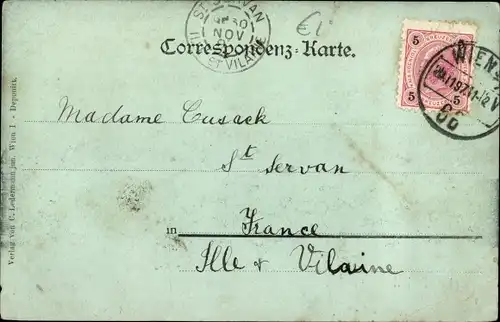 ST SERVAN
30
NOV
ILLE ET VILAINE
Correspondenz-Karte.
5 5
WIEN
66
Madame Cusack
St Servan
in France
Ille & Vilaine
Verlag von C. Ledermann jun. Wien I. - Deponirt.